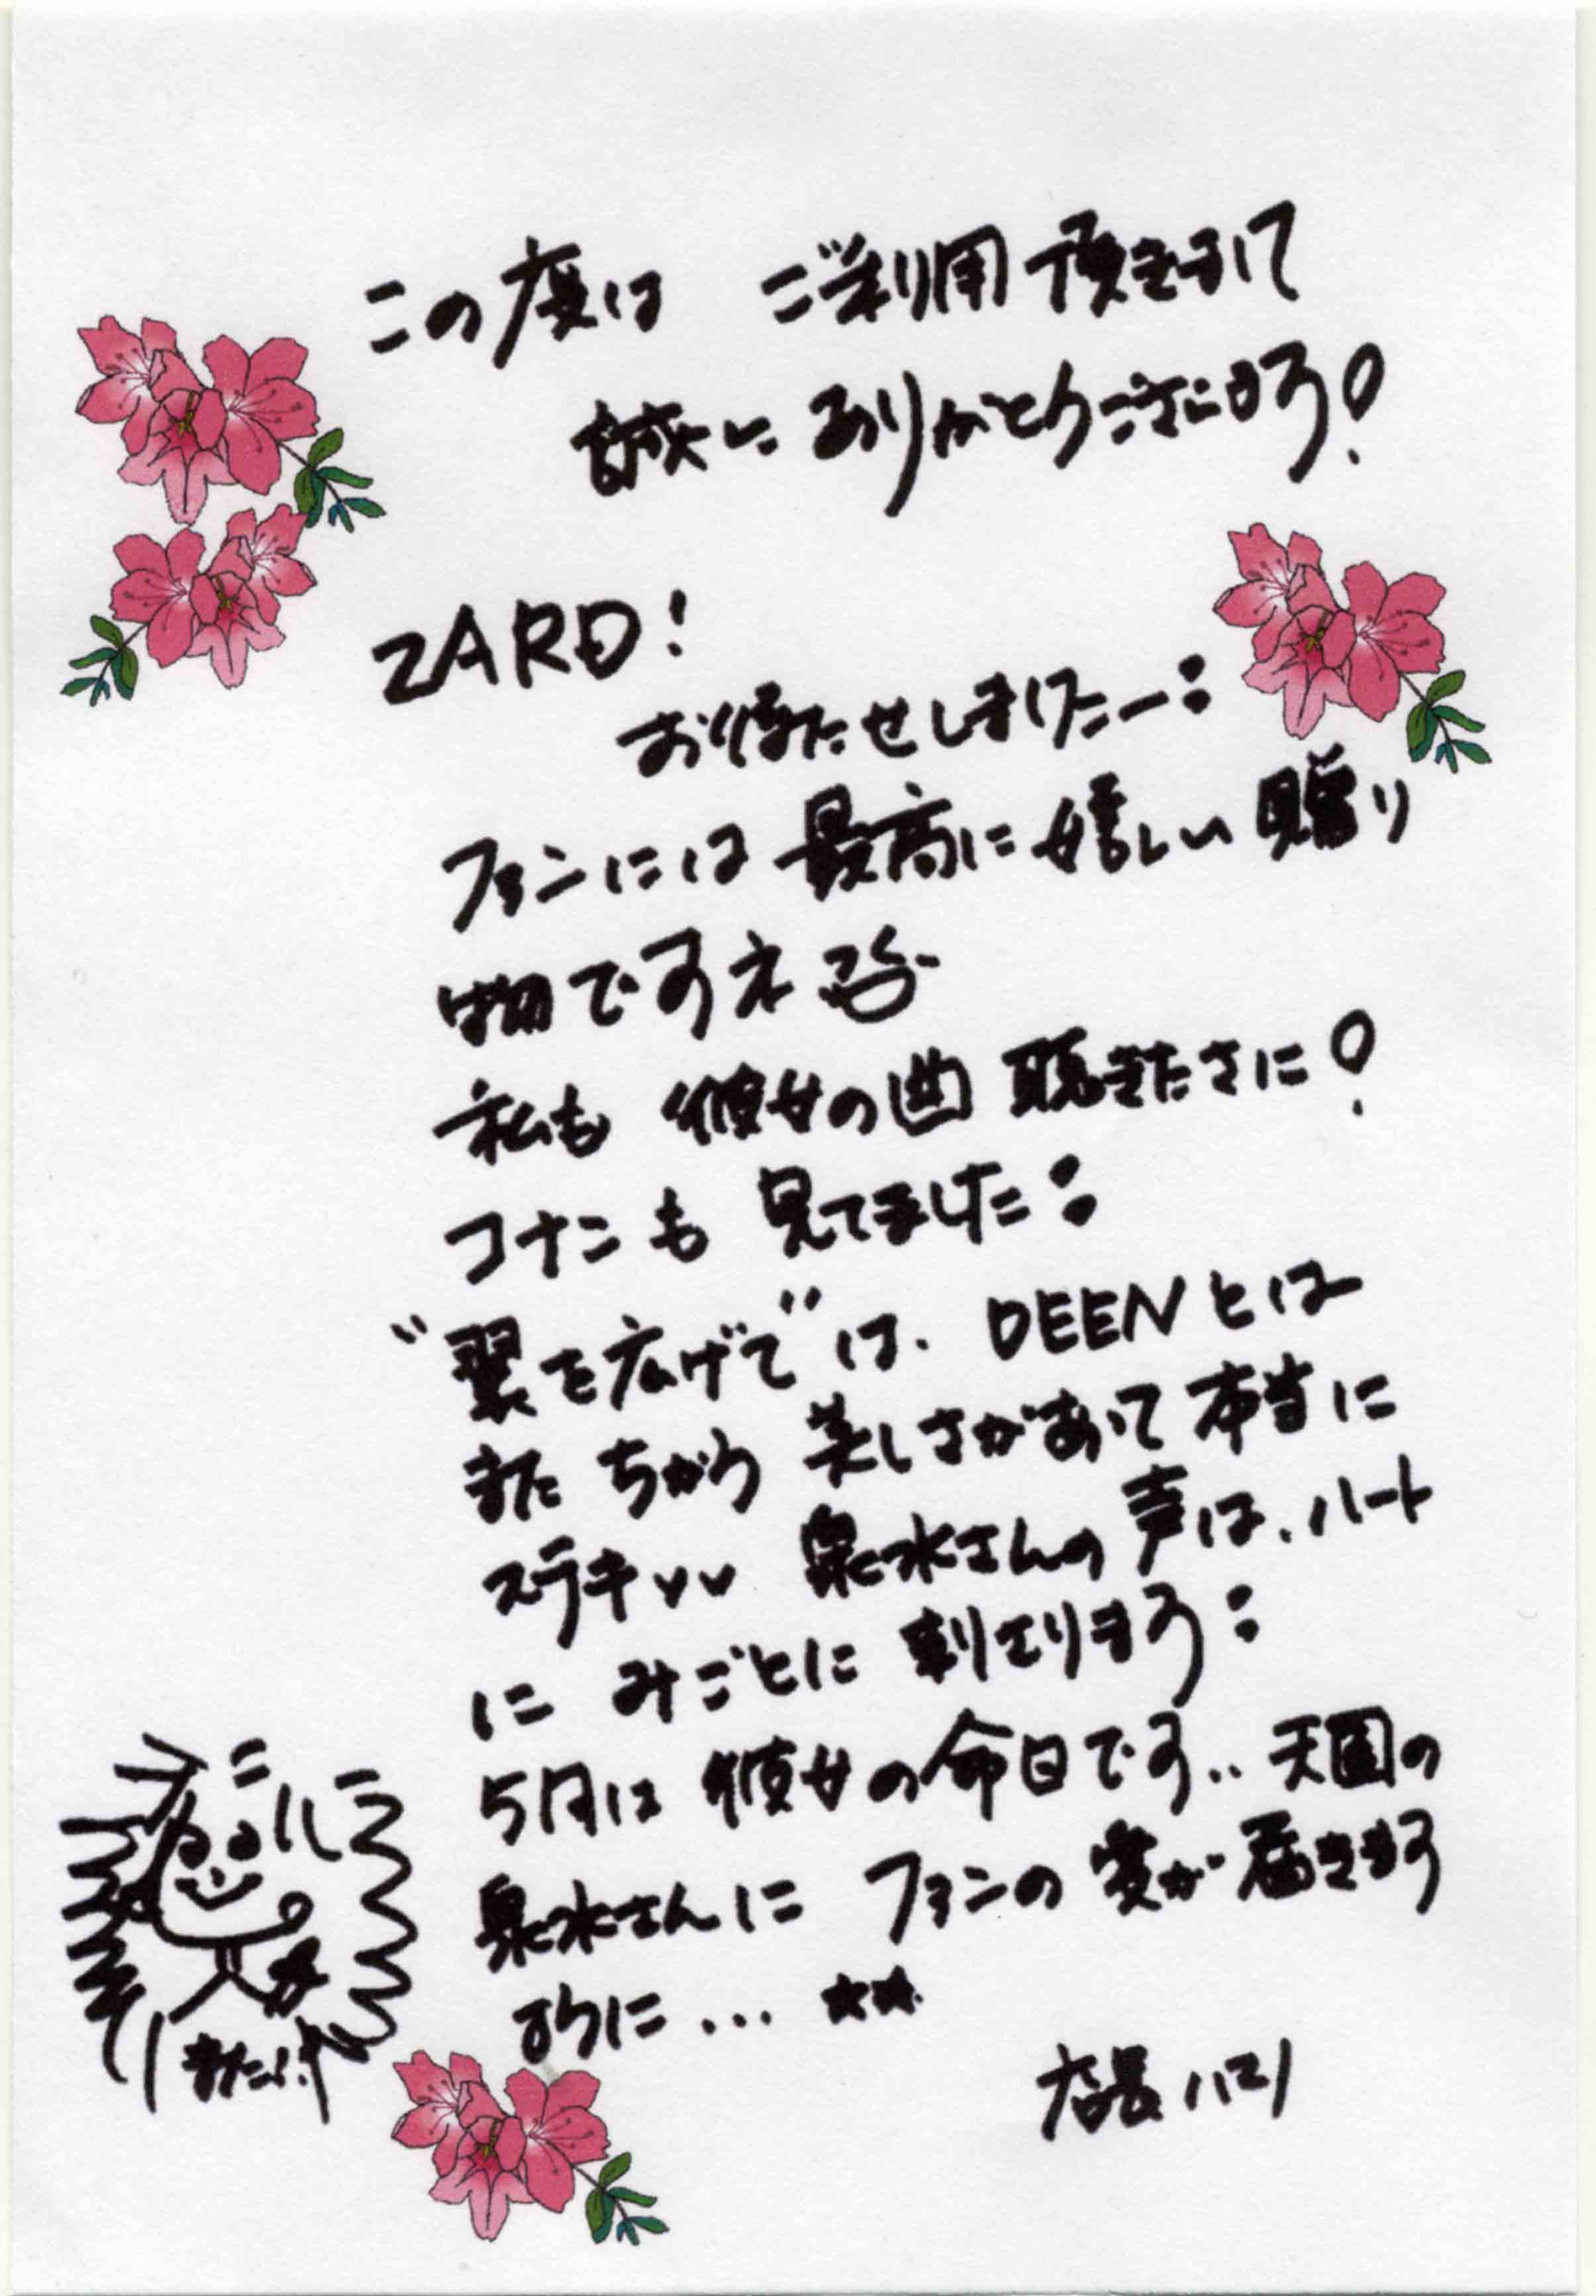 この度は ご利用頂きまして
誠にありがとうございます!
ZARD!
お待たせしましたー:
ファンには最高に嬉しい贈り
物ですネ
私も 彼女の曲 聴きたさに!
コナンも 見てました:
"翼を広げて"は、DEENとは
また ちがう 美しさがあって本当に
ステキvv 泉水さんの声は、ハート
に みごとに 刺さります:
5月は 彼女の命日です.. 天国の
泉水さんに ファンの愛が届きます
ように... ★★
店長